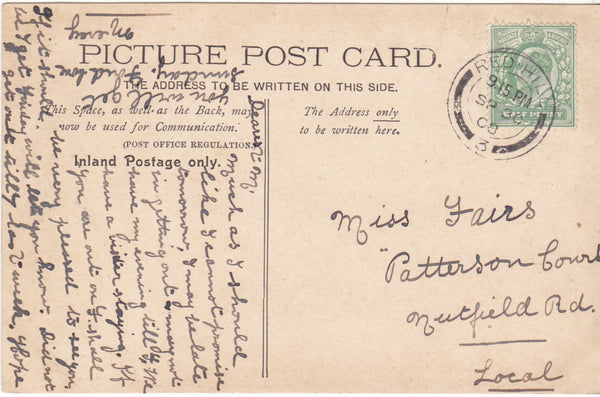 PICTURE POST CARD.
THE ADDRESS TO BE WRITTEN ON THIS SIDE.
This Space, as well as the Back, may
now be used for Communication.
(POST OFFICE REGULATION.)
Inland Postage only.
The Address only
to be written here.
RED HILL
9.15 PM
SP 30
08
3
Miss Fairs
Patterson Court
Nutfield Rd.
Local
Dearest M.
Much as I should
like I cannot promise
tomorrow, I may be late
in getting out & may not
have my evening till. We
have a visitor staying. If
you are out on F. shall
be very pleased to see you,
If it should
I get Friday will let you know. Did not
get out till, Hope
you will get
Sunday. I did